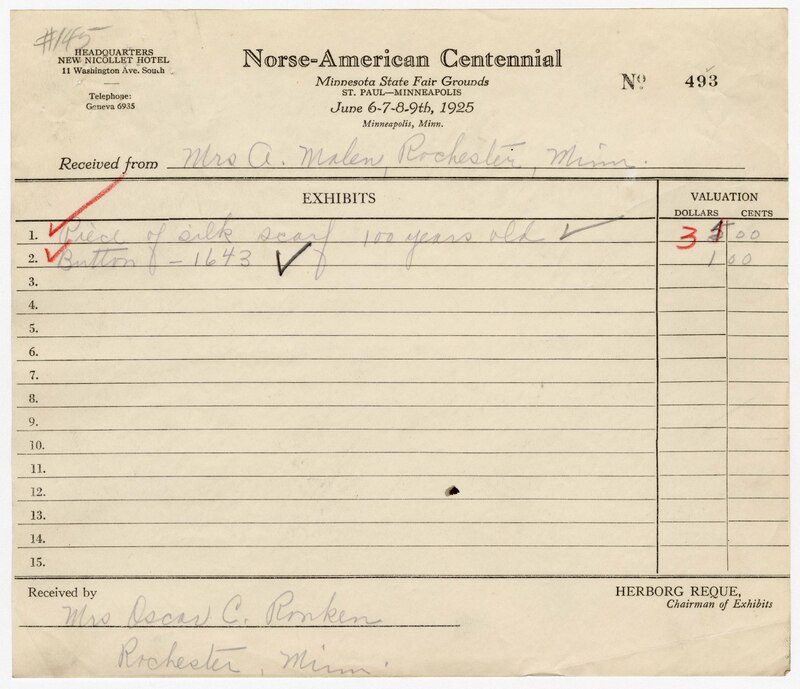 #145
HEADQUARTERS
NEW NICOLLET HOTEL
11 Washington Ave. South
Telephone:
Geneva 6935
Norse-American Centennial
Minnesota State Fair Grounds
ST. PAUL—MINNEAPOLIS
June 6-7-8-9th, 1925
Minneapolis, Minn.
Nº 493
Received from Mrs A. Malen, Rochester, Minn.
EXHIBITS
VALUATION
DOLLARS CENTS
1. Piece of silk scarf 100 years old 3 00
2. Button - 1643 1 00
3.
4.
5.
6.
7.
8.
9.
10.
11.
12.
13.
14.
15.
Received by
Mrs Oscar C. Ronken
Rochester, Minn.
HERBORG REQUE,
Chairman of Exhibits